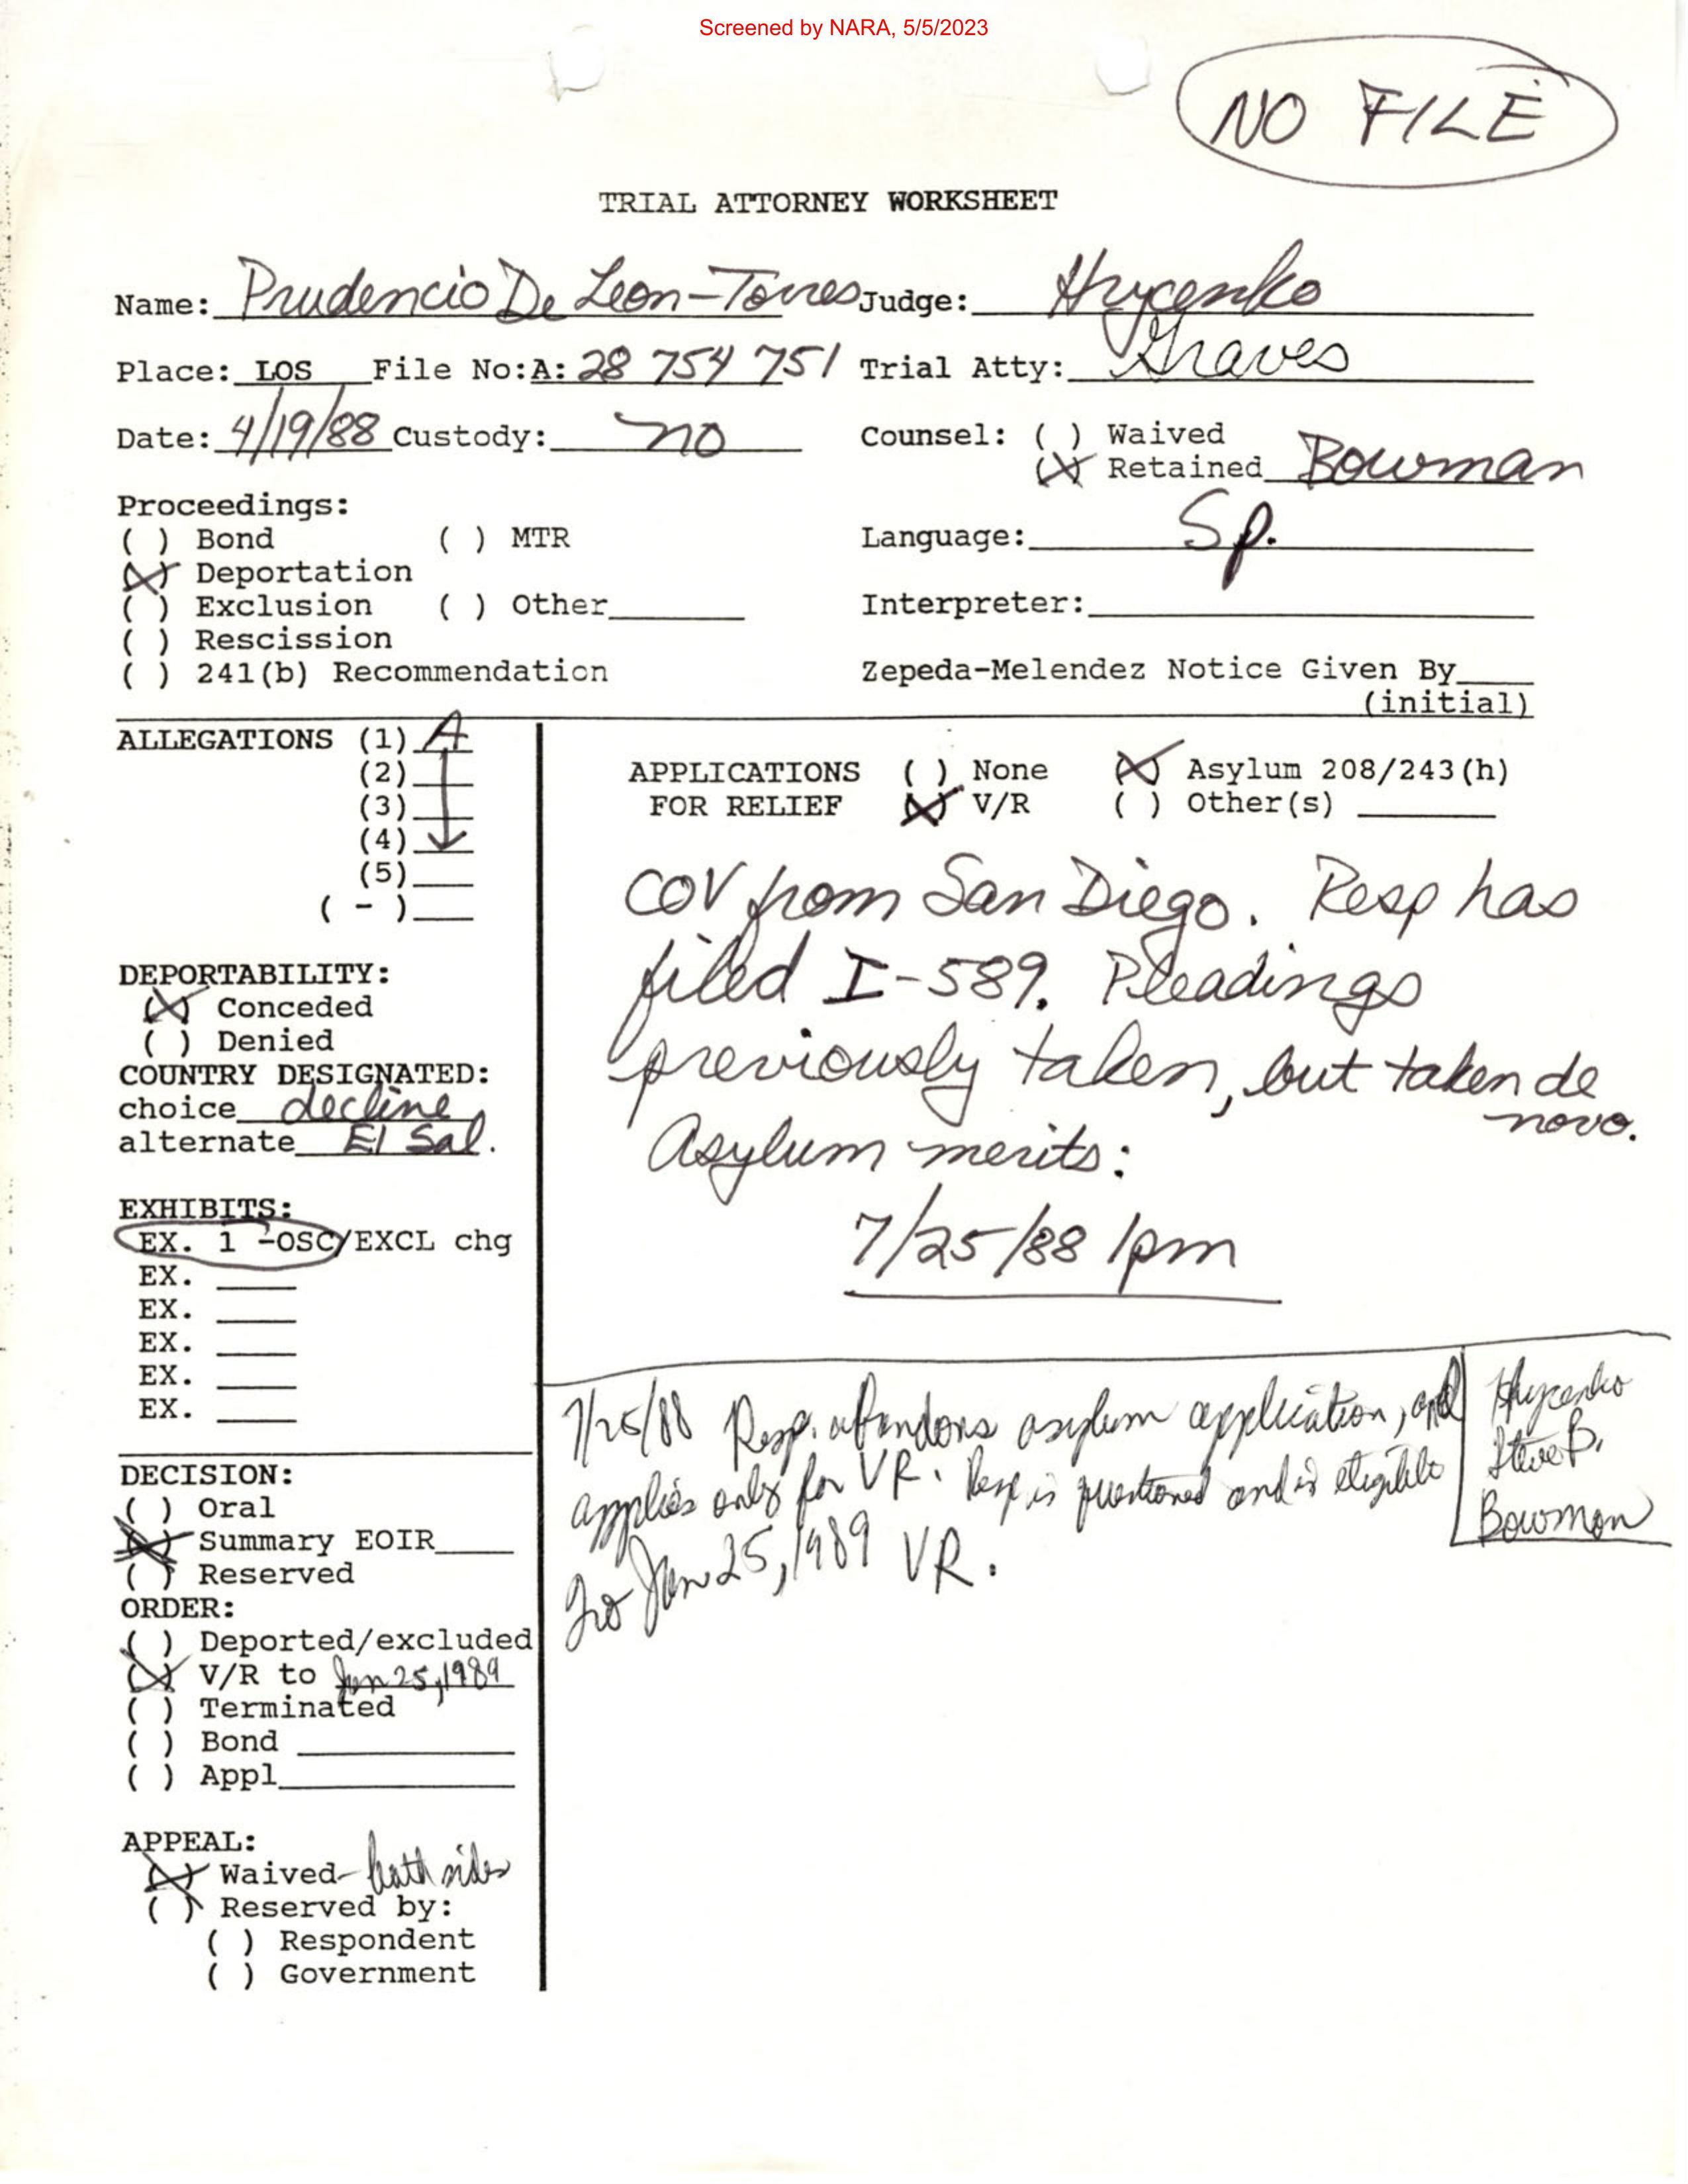 Screened by NARA, 5/5/2023
NO FILE
TRIAL ATTORNEY WORKSHEET
Name: Prudencio De Leon-Torres Judge: Hrycenko
Place: LOS File No:A: 28 754 751 Trial Atty: Graves
Date: 4/19/88 Custody: no Counsel: ( ) Waived
(X) Retained Bowman
Proceedings:
( ) Bond ( ) MTR Language: Sp.
(X) Deportation
( ) Exclusion ( ) Other Interpreter:
( ) Rescission
( ) 241(b) Recommendation Zepeda-Melendez Notice Given By
(initial)
ALLEGATIONS (1) A
(2)
(3)
(4)
(5)
( - )
APPLICATIONS ( ) None (X) Asylum 208/243(h)
FOR RELIEF (X) V/R ( ) Other(s)
COV from San Diego. Resp has
filed I-589. Pleadings
previously taken, but taken de
novo.
Asylum merits:
7/25/88 1pm
DEPORTABILITY:
(X) Conceded
( ) Denied
COUNTRY DESIGNATED:
choice decline
alternate El Sal.
EXHIBITS:
EX. 1 -OSC/EXCL chg
EX.
EX.
EX.
EX.
EX.
7/25/88 Resp. abandons asylum application, and
applies only for VR. Resp is questioned and is eligible
for Jan 25, 1989 VR.
Hrycenko
Steve B.
Bowman
DECISION:
( ) Oral
(X) Summary EOIR
( ) Reserved
ORDER:
( ) Deported/excluded
(X) V/R to Jan 25, 1989
( ) Terminated
( ) Bond
( ) Appl
APPEAL:
(X) Waived- both sides
( ) Reserved by:
( ) Respondent
( ) Government